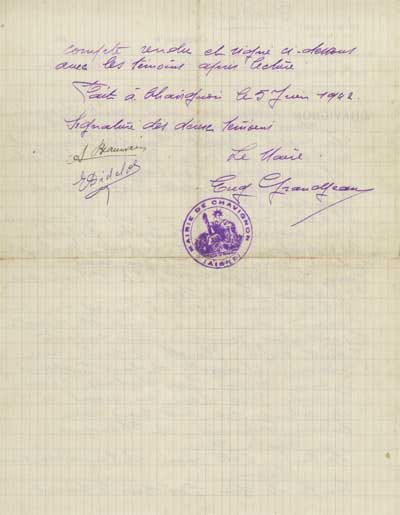 compte rendu et signé ci-dessous
avec les témoins après lecture
Fait à Chavignon le 5 Juin 1942
Signature des deux témoins
Le Maire
E Didelot
Eug Grandjean
MAIRIE DE CHAVIGNON
(AISNE)